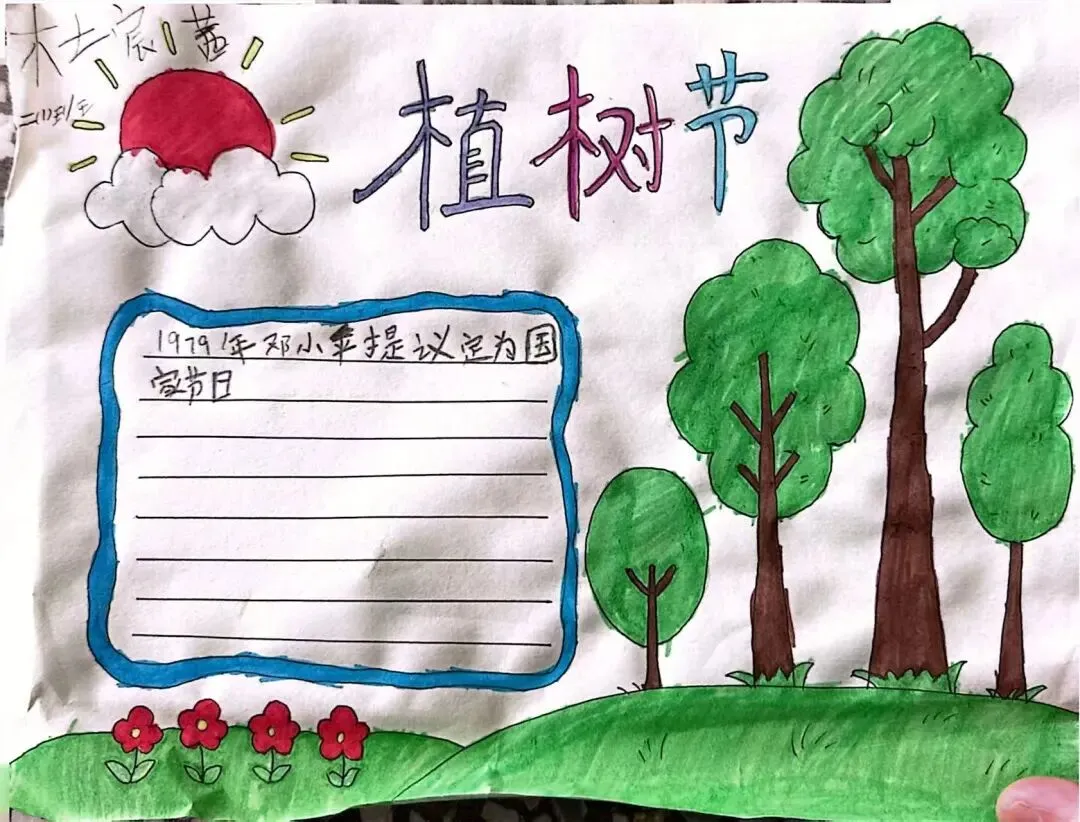 杜宸茜
二(1)班
植树节
1979年邓小平提议定为国
家节日